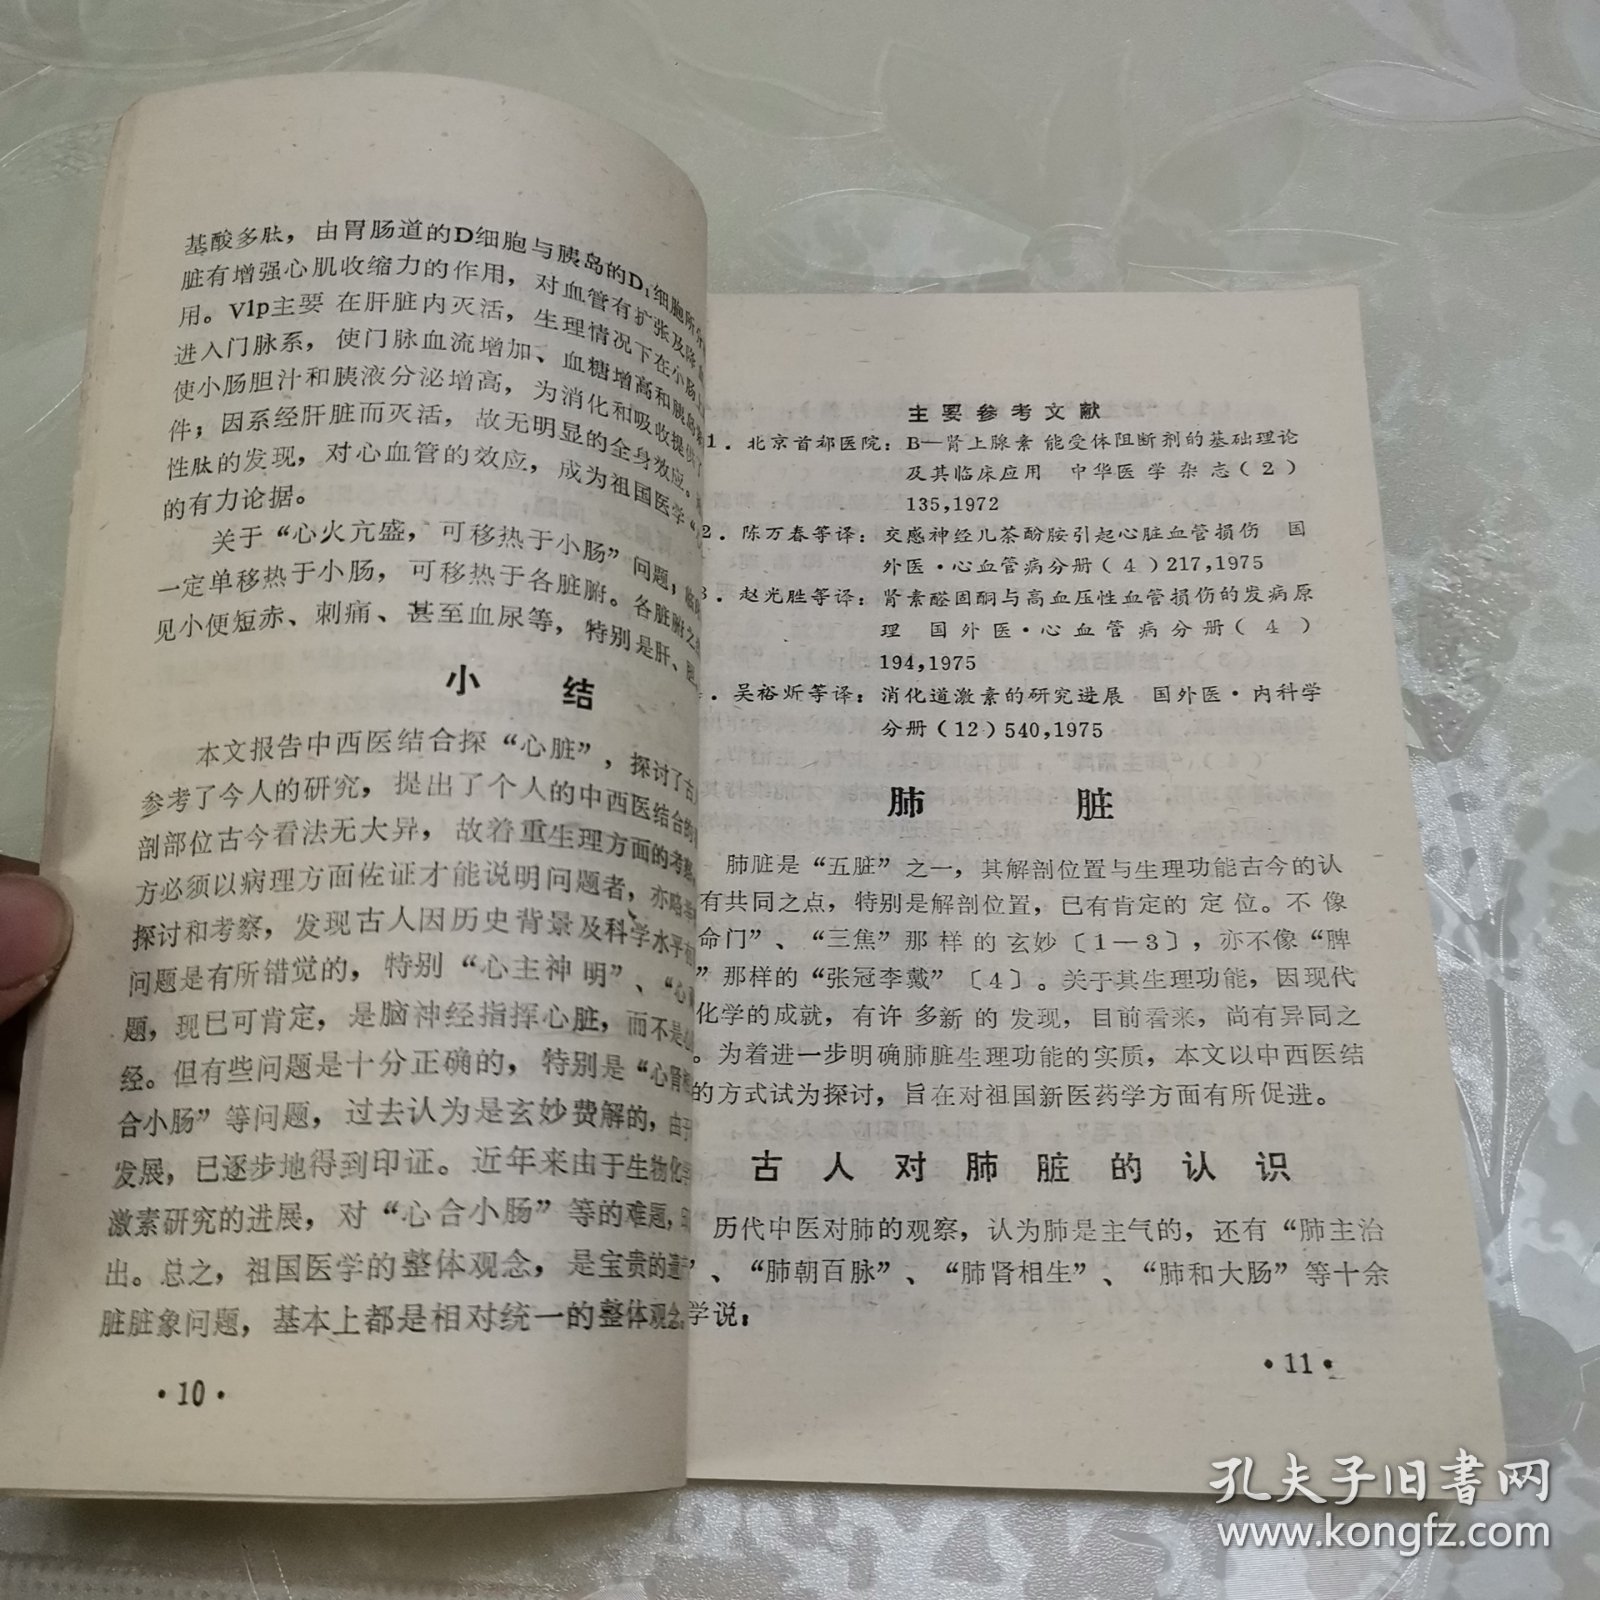 基酸多肽，由胃肠道的D细胞与胰岛的D₁细胞所分
脏有增强心肌收缩力的作用，对血管有扩张及降
用。V1p主要 在肝脏内灭活，生理情况下在小肠
进入门脉系，使门脉血流增加、血糖增高和胰岛
使小肠胆汁和胰液分泌增高，为消化和吸收提供了
件；因系经肝脏而灭活，故无明显的全身效应。
性肽的发现，对心血管的效应，成为祖国医学“
的有力论据。
关于“心火亢盛，可移热于小肠”问题，临
一定单移热于小肠，可移热于各脏腑。各脏腑之
见小便短赤、刺痛、甚至血尿等，特别是肝、胆
小 结
本文报告中西医结合探“心脏”，探讨了古
参考了今人的研究，提出了个人的中西医结合的
剖部位古今看法无大异，故着重生理方面的考察
方必须以病理方面佐证才能说明问题者，亦略
探讨和考察，发现古人因历史背景及科学水平
问题是有所错觉的，特别“心主神明”、“心
题，现已可肯定，是脑神经指挥心脏，而不是
经。但有些问题是十分正确的，特别是“心肾
合小肠”等问题，过去认为是玄妙费解的，由于
发展，已逐步地得到印证。近年来由于生物化学
激素研究的进展，对“心合小肠”等的难题，
出。总之，祖国医学的整体观念，是宝贵的遗
脏脏象问题，基本上都是相对统一的整体观念
·10·
主要参考文献
1．北京首都医院：B—肾上腺素 能受体阻断剂的基础理论
及其临床应用 中华医学杂志(2)
135,1972
2．陈万春等译：交感神经儿茶酚胺引起心脏血管损伤 国
外医·心血管病分册(4)217,1975
3．赵光胜等译：肾素醛固酮与高血压性血管损伤的发病原
理 国外医·心血管病分册(4)
194,1975
．吴裕炘等译：消化道激素的研究进展 国外医·内科学
分册(12)540,1975
肺 脏
肺脏是“五脏”之一，其解剖位置与生理功能古今的认
有共同之点，特别是解剖位置，已有肯定的定位。不像
命门”、“三焦”那样的玄妙〔1—3〕，亦不像“脾
”那样的“张冠李戴”〔4〕。关于其生理功能，因现代
化学的成就，有许多新的发现，目前看来，尚有异同之
。为着进一步明确肺脏生理功能的实质，本文以中西医结
的方式试为探讨，旨在对祖国新医药学方面有所促进。
古人对肺脏的认识
历代中医对肺的观察，认为肺是主气的，还有“肺主治
”、“肺朝百脉”、“肺肾相生”、“肺和大肠”等十余
学说：
·11·
孔夫子旧书网
www.kongfz.com